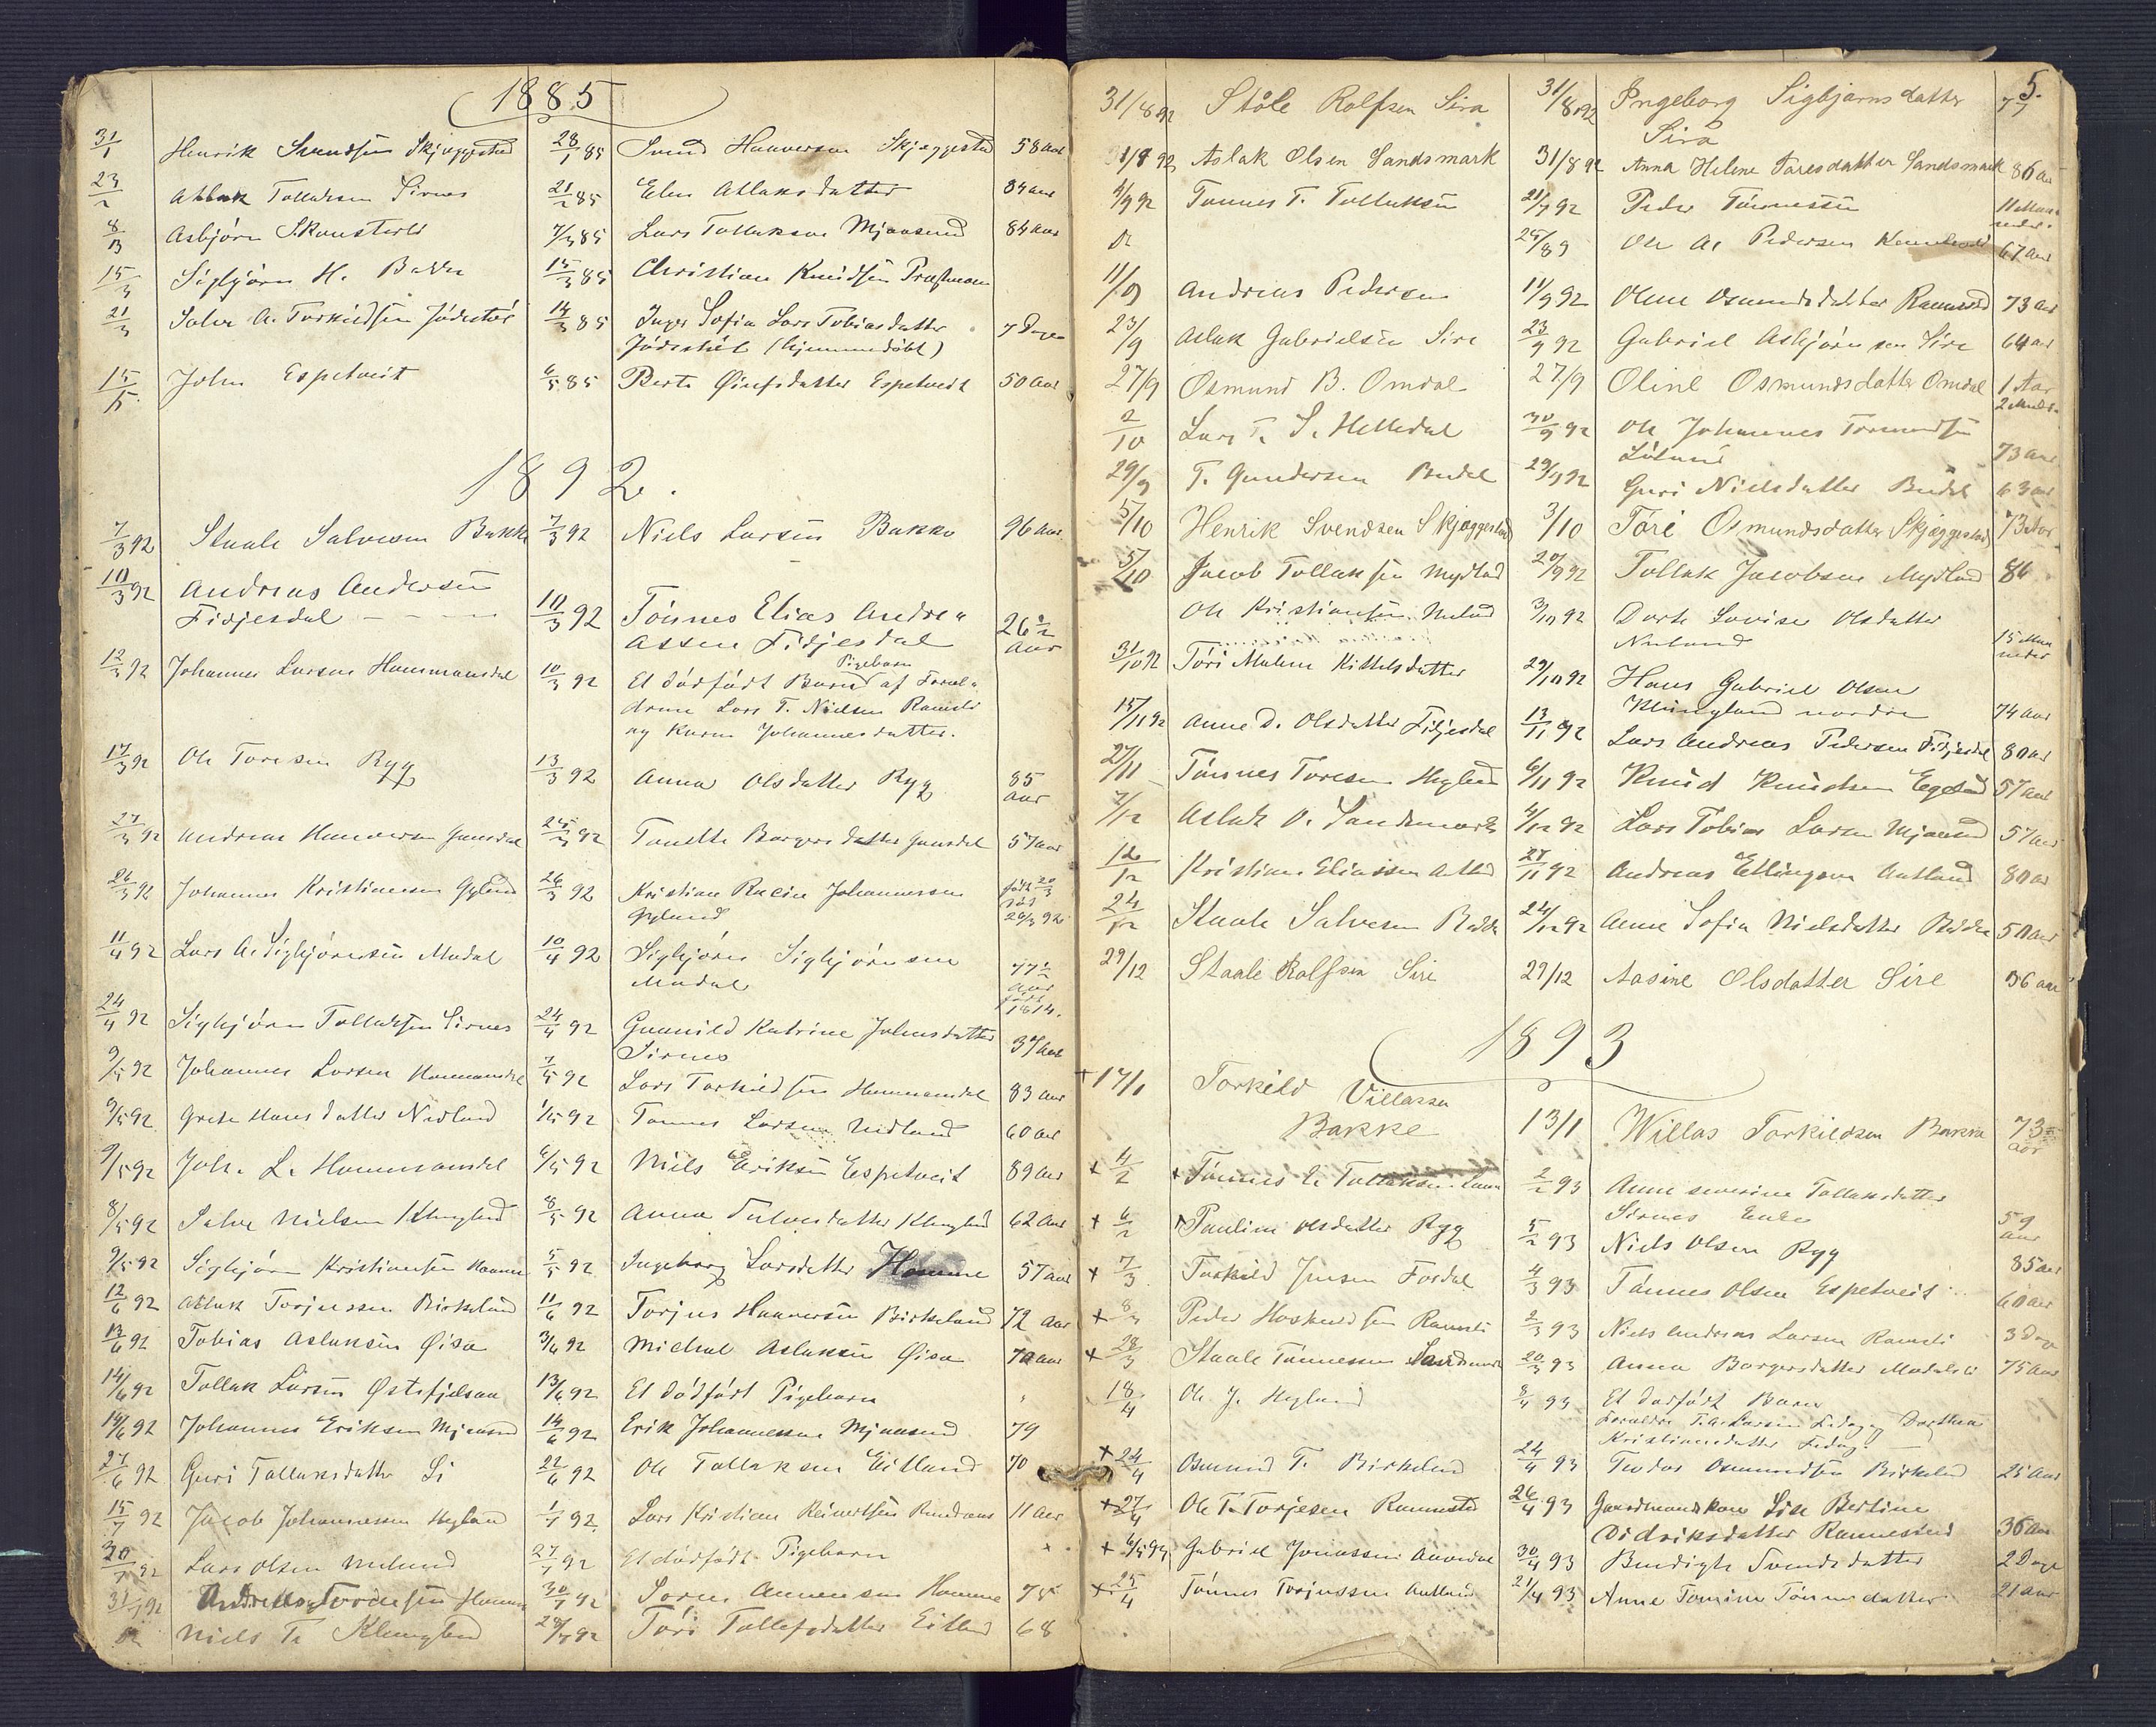 1885
31/1 Henrik Svendsen Skjæggestad 28/1 85 Svend Hanversen Skjæggestad 58 aar
23/2 Atlak Tollaksen Sirnes 21/2 85 Elen Atlaksdatter 84 aar
8/3 Asbjörn 7/3 85 Lars Tollaksen Mjaasund 84 aar
15/3 Sigbjörn H. Bakke 15/3 85 Christian Knudsen
21/3 Salve A. Torkildsen Jödestöl 14/3 85 Inger Sofia Lars Tobiasdatter 7 Dage
Jödestöl (hjemmedöbt)
15/5 John Espetveit 6/5 85 Berte Øinfsdatter Espetveit 50 aar
1892.
7/3 92 Staale Salvesen Bakke 7/3 92 Niels Larsen Bakke 96 aar
10/3 92 Andreas Andersen
Fidjesdal 10/3 92 Tönnes Elias Andre"
assen Fidjesdal 26 1/2 aar
12/3 92 Johannes Larsen Hammansdal 10/3 92 Et dödfödt Barn Pigebarn af Foræl"
drene Lars T. Nielsen Ramsli
og Karen Johannesdatter.
17/3 92 Ole Toresen Rygg 13/3 92 Anna Olsdatter Rygg 85 aar
27/3 92 Andreas Hanversen Gunsdal 25/3 92 Tonette Borgersdatter Gunsdal 57 aar
26/3 92 Johannes Kristiansen Gyland 26/3 92 Kristian Racin Johannessen
Gyland födt 20/3 död 26/3 92
11/4 92 Lars A. Sigbjörnsen Modal 10/4 92 Sigbjörn Sigbjörnsen
Modal 77 1/2 aar födt 1814.
24/4 92 Sigbjörn Tollaksen Sirnes 24/4 92 Gunnild Katrine Johnsdatter
Sirnes 37 aar
9/5 92 Johannes Larsen Hammansdal 7/5 92 Lars Torkildsen Hammansdal 83 aar
9/5 92 Grete Hansdatter Nedland 1/5 92 Tönnes Larsen Nedland 60 aar
9/5 92 Joh. L. Hommansdal 6/5 92 Niels Eriksen Espetveit 89 aar
8/5 92 Salve Nielsen Klungland 8/5 92 Anna Salvesdatter Klungland 62 aar
9/5 92 Sigbjörn Kristiansen Hamme 5/5 92 Ingeborg Larsdatter Homme 57 aar
12/6 92 Atlak Torjussen Birkeland 11/6 92 Torjus Hanversen Birkeland 72 aar
13/6 92 Tobias Aslaksen Øisa 3/6 92 Michal Aslaksen Øisa 70 aar
14/6 92 Tollak Larsen Østefjelsaa 13/6 92 Et dödfödt Pigebarn
14/6 92 Johannes Eriksen Mjaasund 14/6 92 Erik Johannessen Mjaasund 79
27/6 92 Guri Tollaksdatter Li 22/6 92 Ole Tollaksen Eitland 70
15/7 92 Jacob Johannessen Hegland 1/7 92 Lars Kristian Reinertsen 11 aar
30/7 92 Lars Olsen Nuland 27/7 92 Et dödfödt Pigebarn
31/7 92 Andreas Tordesen Homme 30/7 92 Sören Aanensen Homme 75
Niels T. Klungland 28/7 92 Töri Tollefsdatter Eitland 68
5.
31/8 92 Ståle Rolfsen Sira 31/8 92 Ingeborg Sigbjørnsdatter
Sira 77
31/8 92 Aslak Olsen Sandsmark 31/8 92 Anna Helene Taresdatter Sandsmark 86 aar
9/9 92 Tonnes T. Tollaksen 21/7 92 Peder Tönnessen 11 Maaneder.
25/8 9 Ole A. Pedersen 67 aar
11/9 Andreas Pedersen 11/9 92 Oline Osmundsdatter Rannestad 73 aar
23/9 Aslak Gabrielsen Sire 23/9 92 Gabriel Asbjörnsen Sire 64 aar
27/9 Osmund B. Omdal 27/9 Oline Osmundsdatter Omdal 1 Aar
2 Mnd.
2/10 Lars T. S. Helledal 30/9 92 Ole Johannes Tormundsen
Löland 73 aar
29/9 T. Gundersen Budal 29/9 92 Guri Nielsdatter Budal 63 aar
5/10 Henrik Svendsen Skjæggestad 3/10 Töri Osmundsdatter Skjæggestad 73 Aar
5/10 Jacob Tollaksen Mydland 20/9 92 Tollak Jacobsen Mydland 86
Ole Kristiansen Nulad 3/10 92 Dorte Lovise Olsdatter
Nuland 15 Maaneder
31/10 92 Töri Malene Kittelsdatter 29/10 92 Hans Gabriel Olsen
Klungland nordre 74 aar
15/11 92 Anne D. Olsdatter Fidjesdal 13/11 92 Lars Andreas Pedersen Fidjesdal 80 aar
27/11 Tönnes Toresen Hegland 6/11 92 Knud Knudsen Egeland 57 aar
7/12 Aslak O. Sandsmark 4/12 92 Lars Tobias Larsen Mjaasund 57 aar
12/12 Kristian Eliassen Atlad 27/11 92 Andreas Ellingsen Autland 80 aar
24/12 Staale Salvesen Bakke 24/12 92 Anne Sofia Nielsdatter Bakke 50 aar
29/12 Staale Rolfsen Sire 29/12 Aasine Olsdatter Sire 56 aar
1893
+17/1 Torkild Villassen
Bakke 13/1 Willas Torkildsen Bakke 73 aar
+ 4/2 Tönnes L. Tollaksen 2/2 93 Anne Severine Tollaksdatter
Sirnes Enke 59 aar
+ 6/2 Pauline Olsdatter Rygg 5/2 93 Niels Olsen Rygg 85 aar
+ 7/3 Torkild Jensen Fosdal 4/3 93 Tönnes Olsen Espetveit 60 aar
+ 8/3 Peder Hoskuldsen Ramsli 2/3 93 Niels Andreas Larsen Ramsli 3 Dage
+ 28/3 Staale Tönnessen Sandsmark 20/3 93 Anna Borgersdatter Modalsli 75 aar
18/4 Ole J. Hegland 8/4 93 Et dödfödt Barn
Forældre T. A. Larsen Fedog og Dorthea
Kristiansdatter Fedog.
+ 24/4 Osmund T. Birkeland 24/4 93 Teodor Osmundsen Birkeland 25 aar
+ 27/4 Ole T. Torjesen Rannestad 26/4 93 Gaardmandskone Lise Bertine
Didriksdatter Rannestad 36 aar
+ 6/5 93 Gabriel Jonassen 30/4 93 Bendigte Svendsdatter 2 Dage
+ 25/4 Tönnes Torjussen Autland 21/4 93 Anne Tomine Tönnesdatter 21 aar